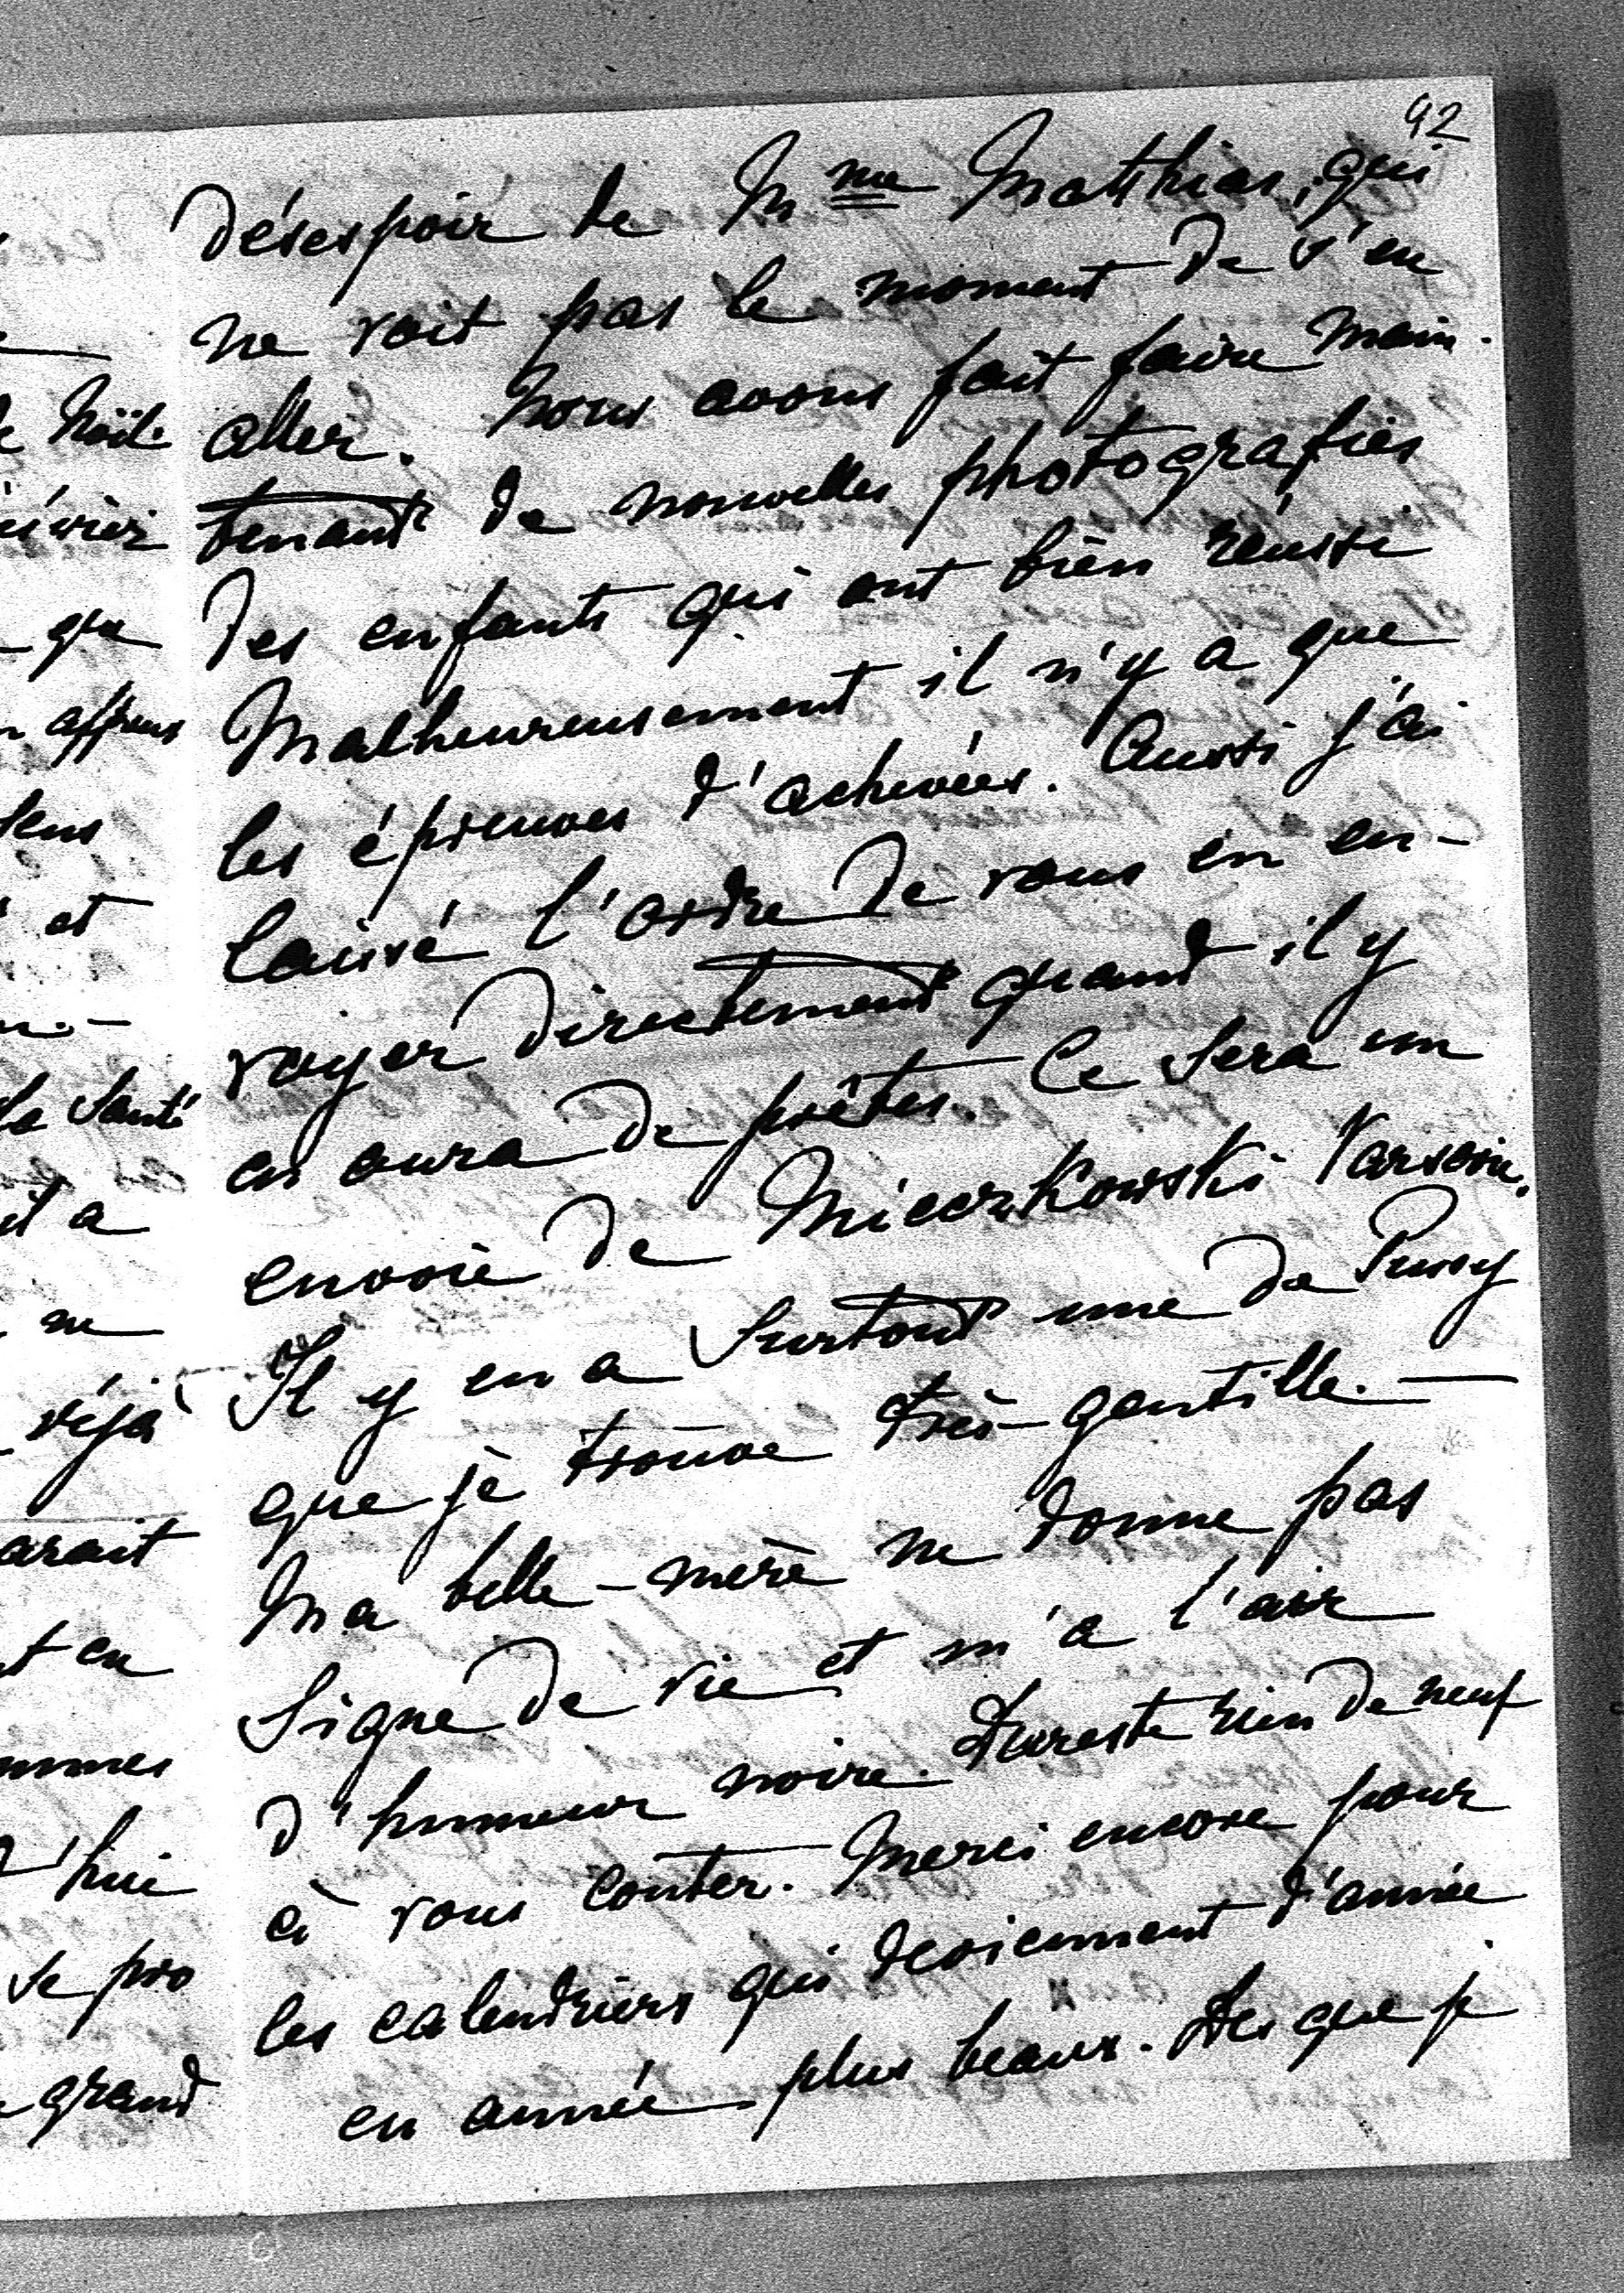 92
désespoir de Mme Matthias, qui
ne voit pas le moment de s'en
aller. Nous avons fait faire main-
tenant de nouvelles photografies
des enfants qui ont bien réussi
Malheureusement il n'y a que
les épreuves d'achevées. Aussi j'ai
laissé l'ordre de vous en en-
voyer directement quand il y
en aura de prêtes. Ce sera un
envoie de Mieczkowski Varsovie.
Il y en a surtout une de Pussy
que je trouve très-gentille. —
Ma belle-mère ne donne pas
signe de vie et m'a l'air
d'humeur noire. Dureste rien de neuf
à vous conter. Merci encore pour
les calendriers qui deviennent d'année
en année plus beaux. Des que je
qu
et
la santé
it a
ne
déjà
arait
t en
mmes
d'hui
se pro
grand